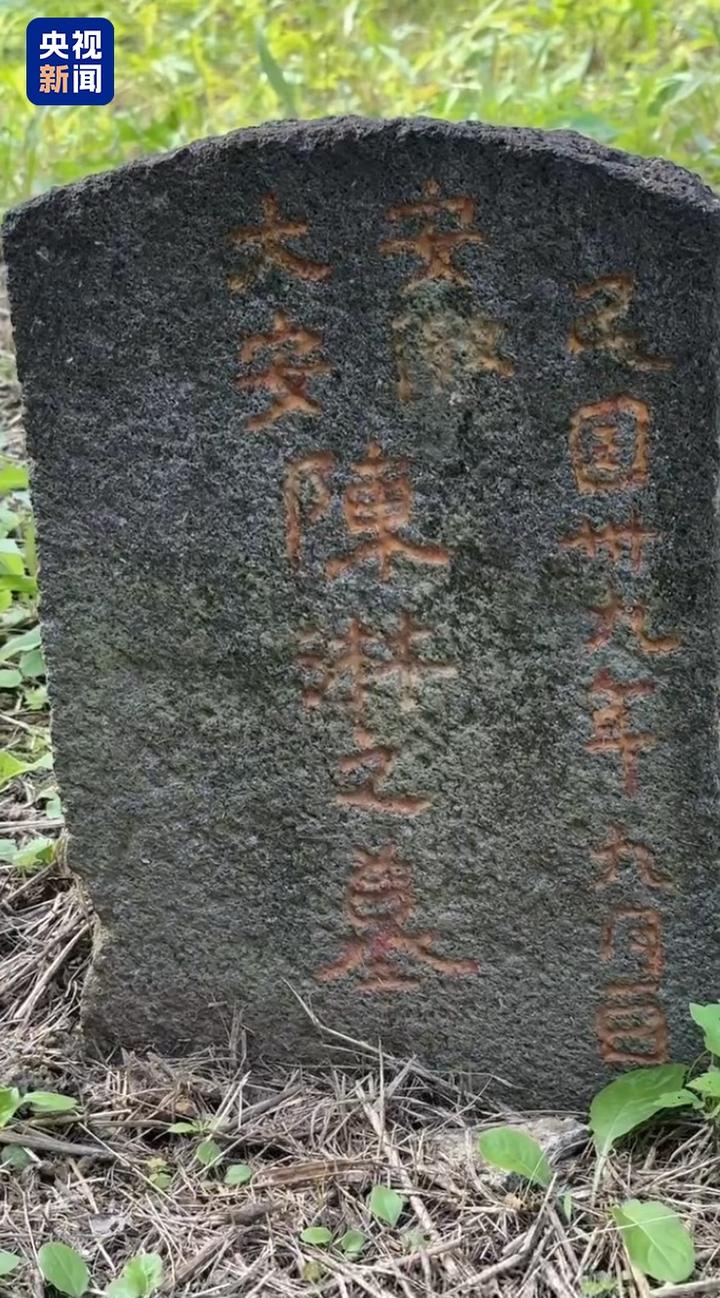 央视
新闻
民国卅九年九月日
安徽
六安
陳淋之墓